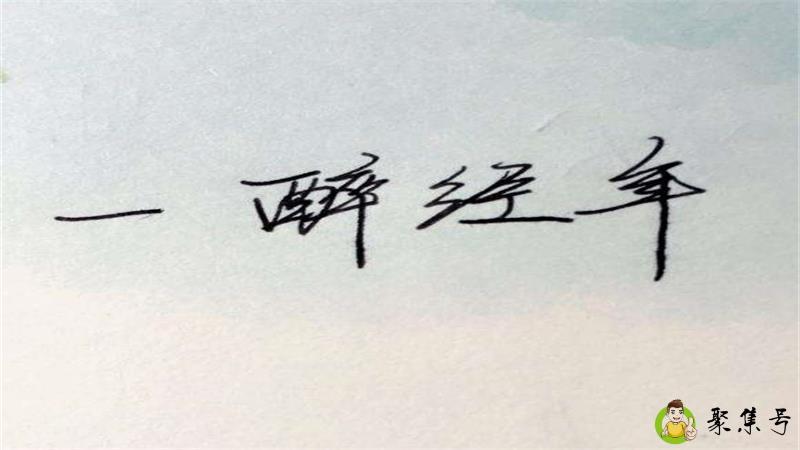 一醉经年
聚集号